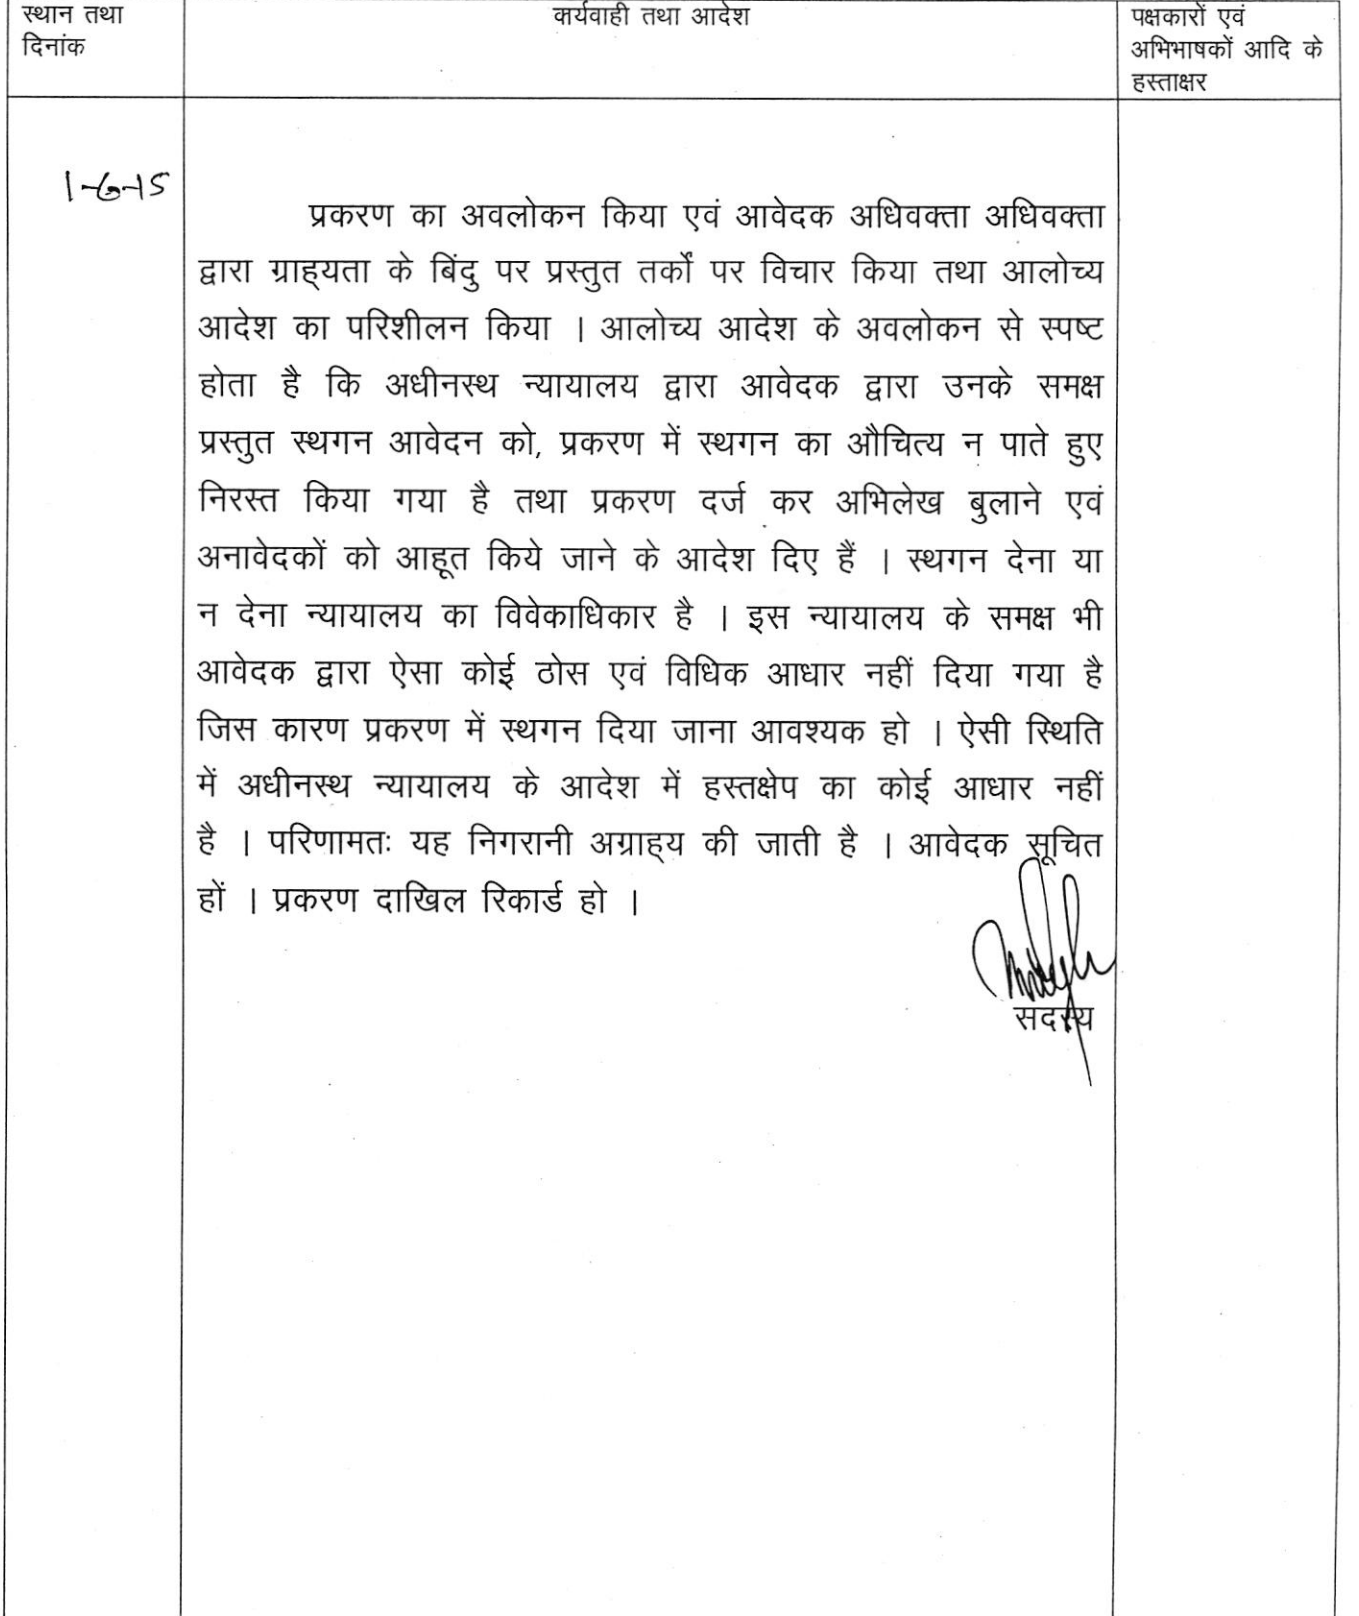 स्थान तथा
दिनांक
कार्यवाही तथा आदेश
पक्षकारों एवं
अभिभाषकों आदि के
हस्ताक्षर
1-6-15
प्रकरण का अवलोकन किया एवं आवेदक अधिवक्ता अधिवक्ता
द्वारा ग्राह्यता के बिंदु पर प्रस्तुत तर्कों पर विचार किया तथा आलोच्य
आदेश का परिशीलन किया । आलोच्य आदेश के अवलोकन से स्पष्ट
होता है कि अधीनस्थ न्यायालय द्वारा आवेदक द्वारा उनके समक्ष
प्रस्तुत स्थगन आवेदन को, प्रकरण में स्थगन का औचित्य न पाते हुए
निरस्त किया गया है तथा प्रकरण दर्ज कर अभिलेख बुलाने एवं
अनावेदकों को आहूत किये जाने के आदेश दिए हैं । स्थगन देना या
न देना न्यायालय का विवेकाधिकार है । इस न्यायालय के समक्ष भी
आवेदक द्वारा ऐसा कोई ठोस एवं विधिक आधार नहीं दिया गया है
जिस कारण प्रकरण में स्थगन दिया जाना आवश्यक हो । ऐसी स्थिति
में अधीनस्थ न्यायालय के आदेश में हस्तक्षेप का कोई आधार नहीं
है । परिणामतः यह निगरानी अग्राह्य की जाती है । आवेदक सूचित
हों । प्रकरण दाखिल रिकार्ड हो ।
सदस्य